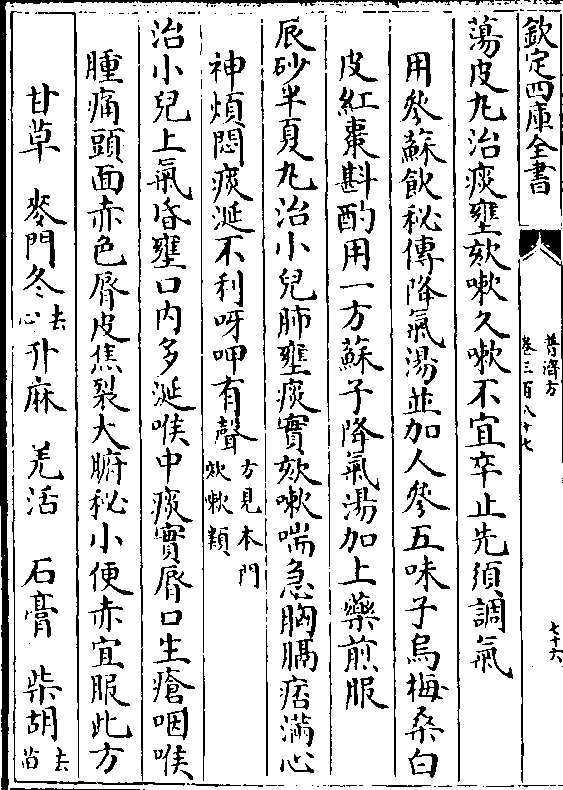 欽定四庫全書
普濟方
卷三百八十七
七十六
蕩皮丸治痰壅欬嗽久嗽不宜卒止先須調氣
用參蘇飲秘傳降氣湯並加人參五味子烏梅桑白
皮紅棗斟酌用一方蘇子降氣湯加上藥煎服
辰砂半夏丸治小兒肺壅痰實欬嗽喘急胸膈痞滿心
神煩悶痰涎不利呀呷有聲方見本門欬嗽類
治小兒上氣昏壅口內多涎喉中痰實脣口生瘡咽喉
腫痛頭面赤色脣皮焦裂大腑秘小便赤宜服此方
甘草 麥門冬去心 升麻 羌活 石膏 柴胡去苗